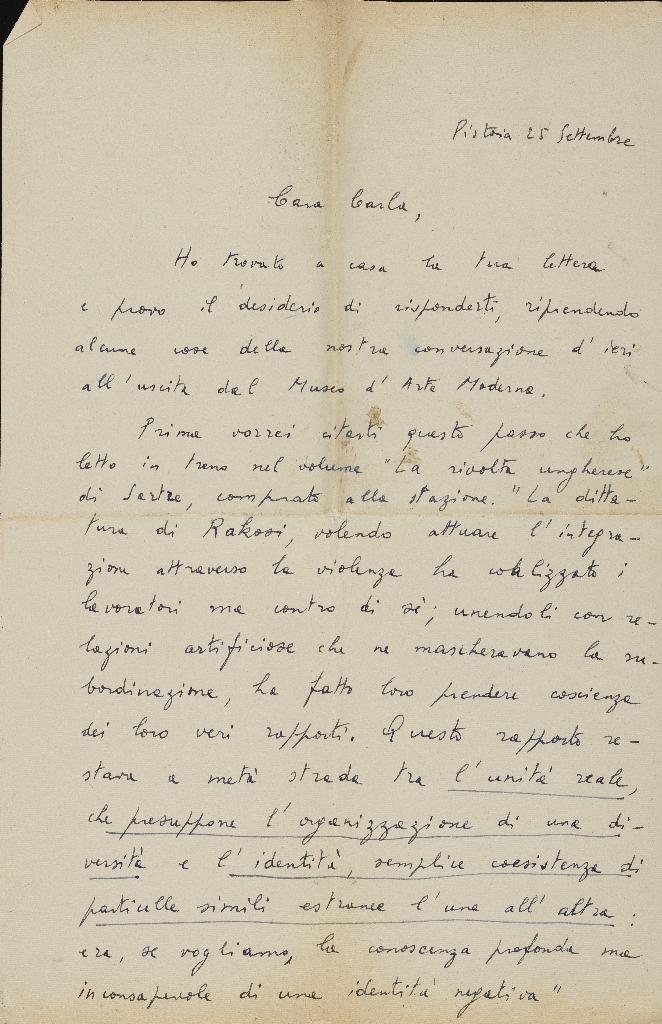 Pistoia 25 Settembre
Cara Carla,
Ho trovato a casa la tua lettera
e provo il desiderio di risponderti, riprendendo
alcune cose della nostra conversazione d'ieri
all'uscita dal Museo d'Arte Moderna.
Prima vorrei citarti questo passo che ho
letto in treno nel volume "La rivolta ungherese"
di Sartre, comprato alla stazione. "La ditta-
tura di Rakosi, volendo attuare l'integra-
zione attraverso la violenza ha coalizzato i
lavoratori ma contro di sé; unendoli con re-
lazioni artificiose che ne mascheravano la su-
bordinazione, ha fatto loro prendere coscienza
dei loro veri rapporti. Questo rapporto re-
stava a metà strada tra l'unità reale,
che presuppone l'organizzazione di una di-
versità e l'identità, semplice coesistenza di
particelle simili estranee l'una all'altra:
era, se vogliamo, la conoscenza profonda ma
inconsapevole di una identità negativa"